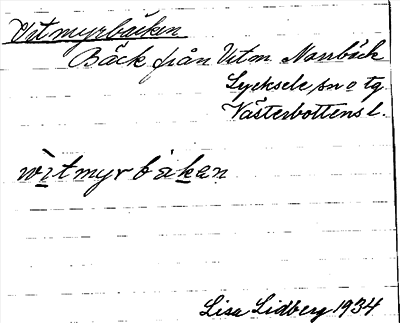 Vitmyrbäcken
Bäck från Vitm. Norrbäck
Lycksele sn o tg
Västerbottens l.
vìtmyrbäkən
Lisa Lidberg 1934